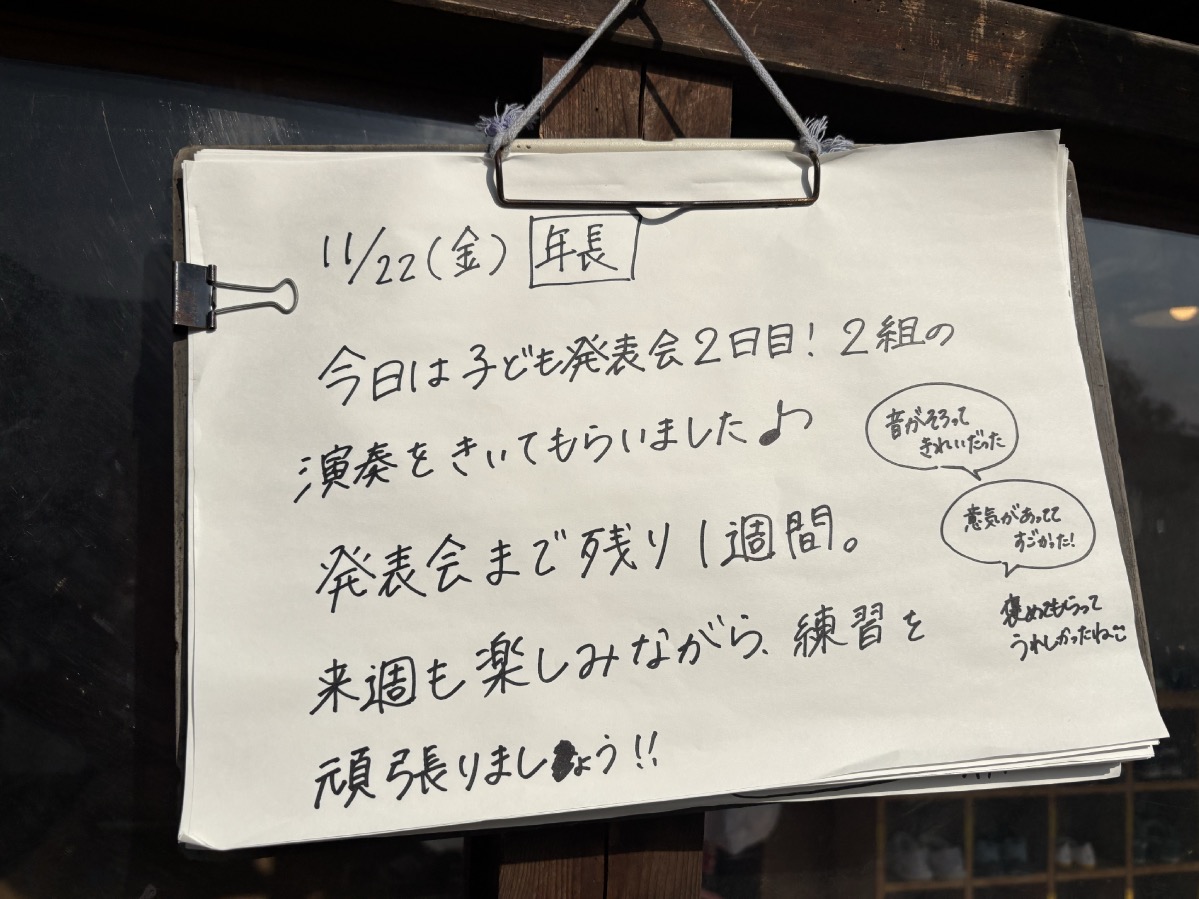 11/22(金) 年長
今日は子ども発表会2日目！2組の
演奏をきいてもらいました♪
音がそろって
きれいだった
意気があってて
すごかった！
発表会まで残り1週間。
褒めてもらって
うれしかったね
来週も楽しみながら、練習を
頑張りましょう!!